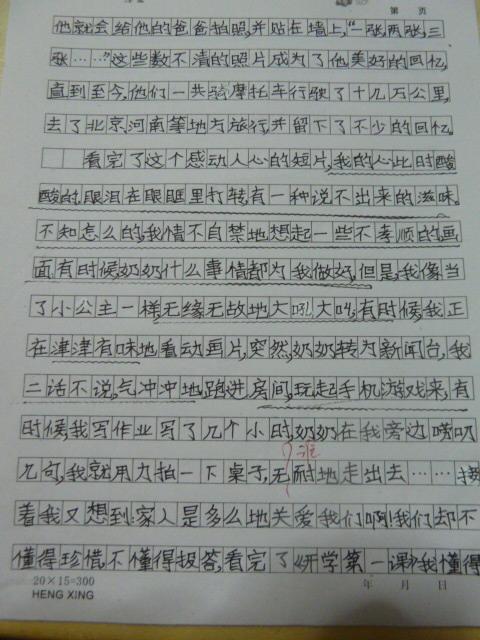 第 页
他就会给他的爸爸拍照,并贴在墙上,“一张,两张,三
张……”这些数不清的照片成为了他美好的回忆,
直到至今,他们一共骑摩托车行驶了十几万公里,
去了北京河南等地方旅行并留下了不少的回忆。
看完了这个感动人心的短片,我的心此时酸
酸的,眼泪在眼眶里打转,有一种说不出来的滋味。
不知怎么的,我情不自禁地想起一些不孝顺的画
面,有时候奶奶什么事情都为我做好,但是,我像当
了小公主一样无缘无故地大吼大叫,有时候,我正
在津津有味地看动画片,突然,奶奶转为新闻台,我
二话不说,气冲冲地跑进房间,玩起手机游戏来,有
时候,我写作业写了几个小时,奶奶在我旁边唠叨
谁
几句,我就用力拍一下桌子,无耐地走出去……接
着我又想到:家人是多么地关爱我们啊!我们却不
懂得珍惜,不懂得报答,看完了《开学第一课》我懂得
20×15=300
年 月 日
HENG XING